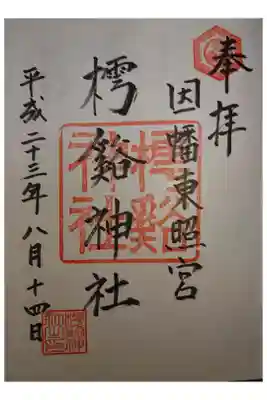 奉拝
因幡東照宮
樗谿神社
平成二十三年八月十四日
樗谿
神社